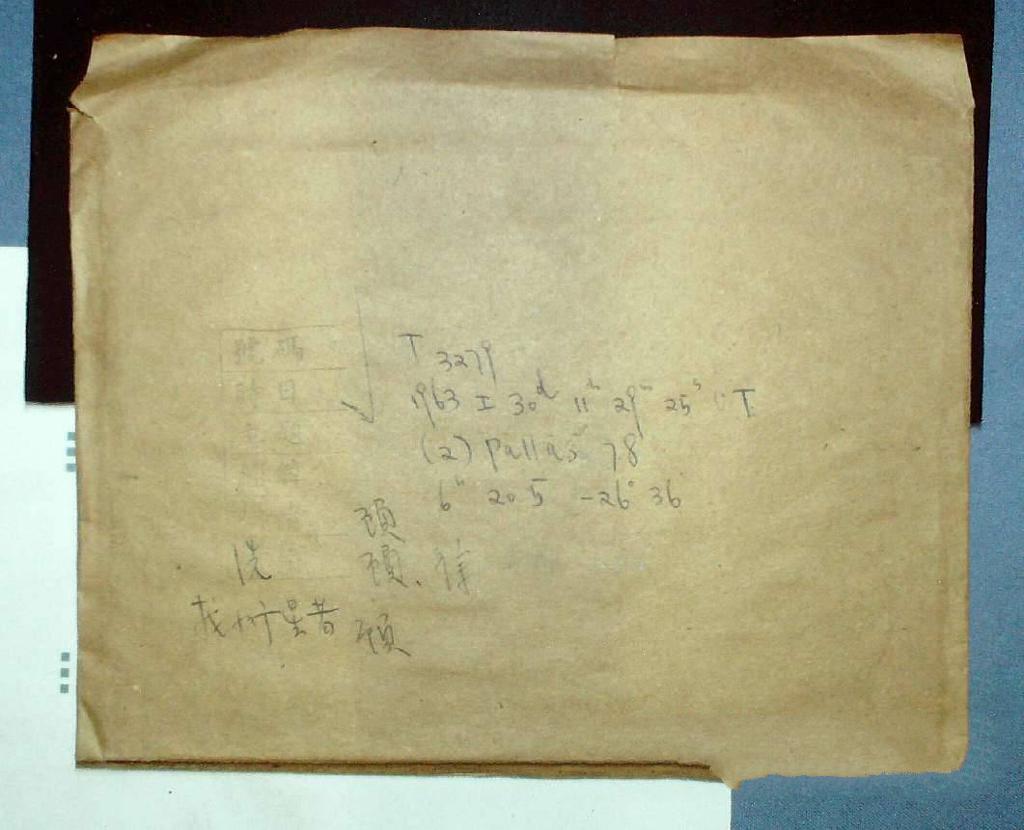 號碼
時日
T 3279
1963 I 30ᵈ 11ʰ 29ᵐ 25ˢ UT
(2) Pallas 78
6ʰ 20.5 -26° 36
顾
洗 顾、徐
找小行星者 顾